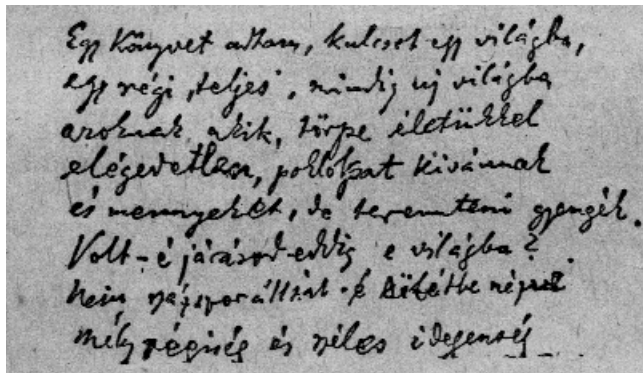 Egy könyvet adtam, kulcsot egy világba,
egy régi, teljes, mindig uj világba
azoknak, akik, törpe életükkel
elégedetlen, poklokat kivánnak
és mennyeket, de teremteni gyengék.
Volt-é járásod eddig e világba?
Nem népet
mély régiség és széles idegenség